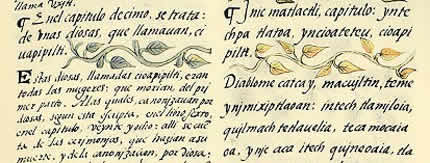 llama
¶ Enel capitulo decimo, se trata:
de vnas diosas, que llamauan, ci
uapipilti.
Estas diosas, llamadas cioapipilti, eran
todas las mugeres: que morian, del pri
mer parto. Alas quales, canonizauan por
diosas, segun esta scripta, enel lino sexto,
enel capitulo. veynte y ocho: alli se cue
ta de las cerimonjas, que hazian asu
muerte, y dela canonizacion, por diosa:
¶ Jnic matlactli, capitulo: ynte
chpa tlatoa, yncioateteu, cioapi
pilti.
Diablome catcay, macujltin, teme
ynjmixiptlaoan: intech tlamjloia,
qujlmach tedlauelia, teca mocaia
oa, yne aca itech qujneoaia, tla